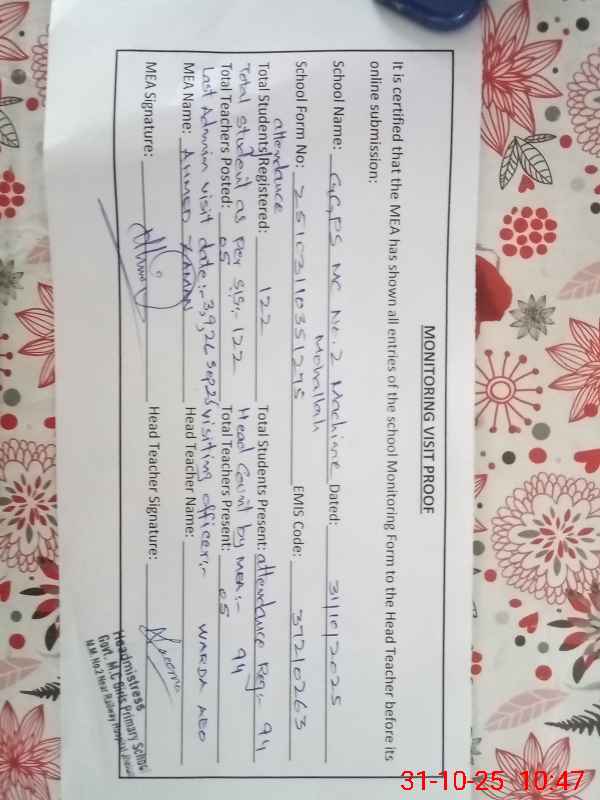 MONITORING VISIT PROOF
It is certified that the MEA has shown all entries of the school Monitoring Form to the Head Teacher before its
online submission:
School Name: G.G.P.S MC No. 2 Machine Mohallah Dated: 31/10/2025
School Form No: 25103110351295 EMIS Code: 37210263
attendance
Total Students Registered: 122 Total Students Present: attendance Reg:- 94
Total Student as per SIS:- 122 Head Count by MEA:- 94
Total Teachers Posted: 05 Total Teachers Present: 05
Last Admin visit date:- 3,9,26 Sep25 visiting officer:- WARDA AEO
MEA Name: AHMED ZAMAN Head Teacher Name:
MEA Signature: Head Teacher Signature:
Headmistress
Govt. M.C Girls Primary School
M.M. No.2 Near Railway Hospital
31-10-25 10:47